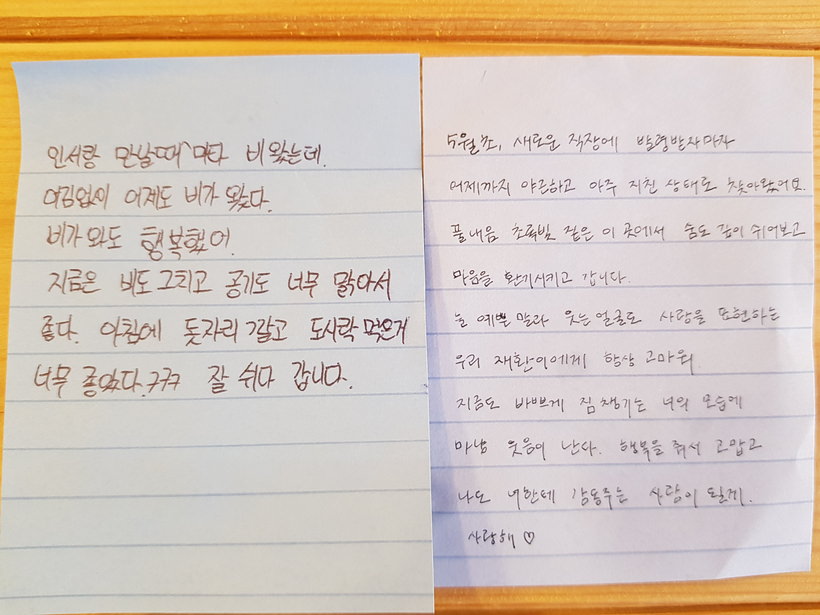 인서랑 만날때마다 비왔는데.
어김없이 어제도 비가 왔다.
비가 와도 행복했어.
지금은 비도 그치고 공기도 너무 맑아서
좋다. 아침에 돗자리 깔고 도시락 먹은거
너무 좋았다.ㅋㅋㅋ 잘 쉬다 갑니다.
5월 초, 새로운 직장에 발령받자마자
어제까지 야근하고 아주 지친 상태로 찾아왔어요.
풀내음 초록빛 짙은 이 곳에서 숨도 깊이 쉬어보고
마음을 환기시키고 갑니다.
늘 예쁜 말과 웃는 얼굴로 사랑을 표현하는
우리 재환이에게 항상 고마워.
지금도 바쁘게 짐 챙기는 너의 모습에
마냥 웃음이 난다. 행복을 줘서 고맙고
나도 너한테 감동주는 사람이 될게.
사랑해 ♡